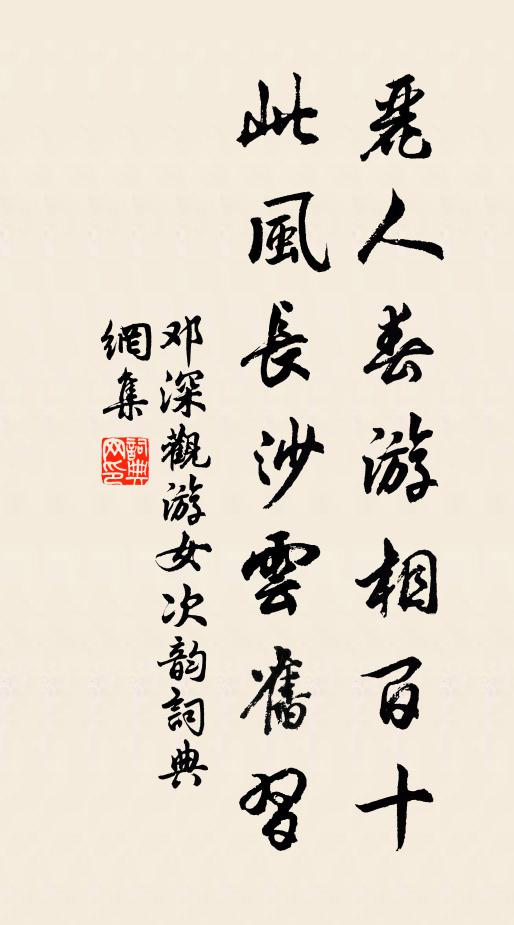 麗人春游相百十
此風長沙雲舊習
邓深觀游女次韵詞典
網集
詞典網印